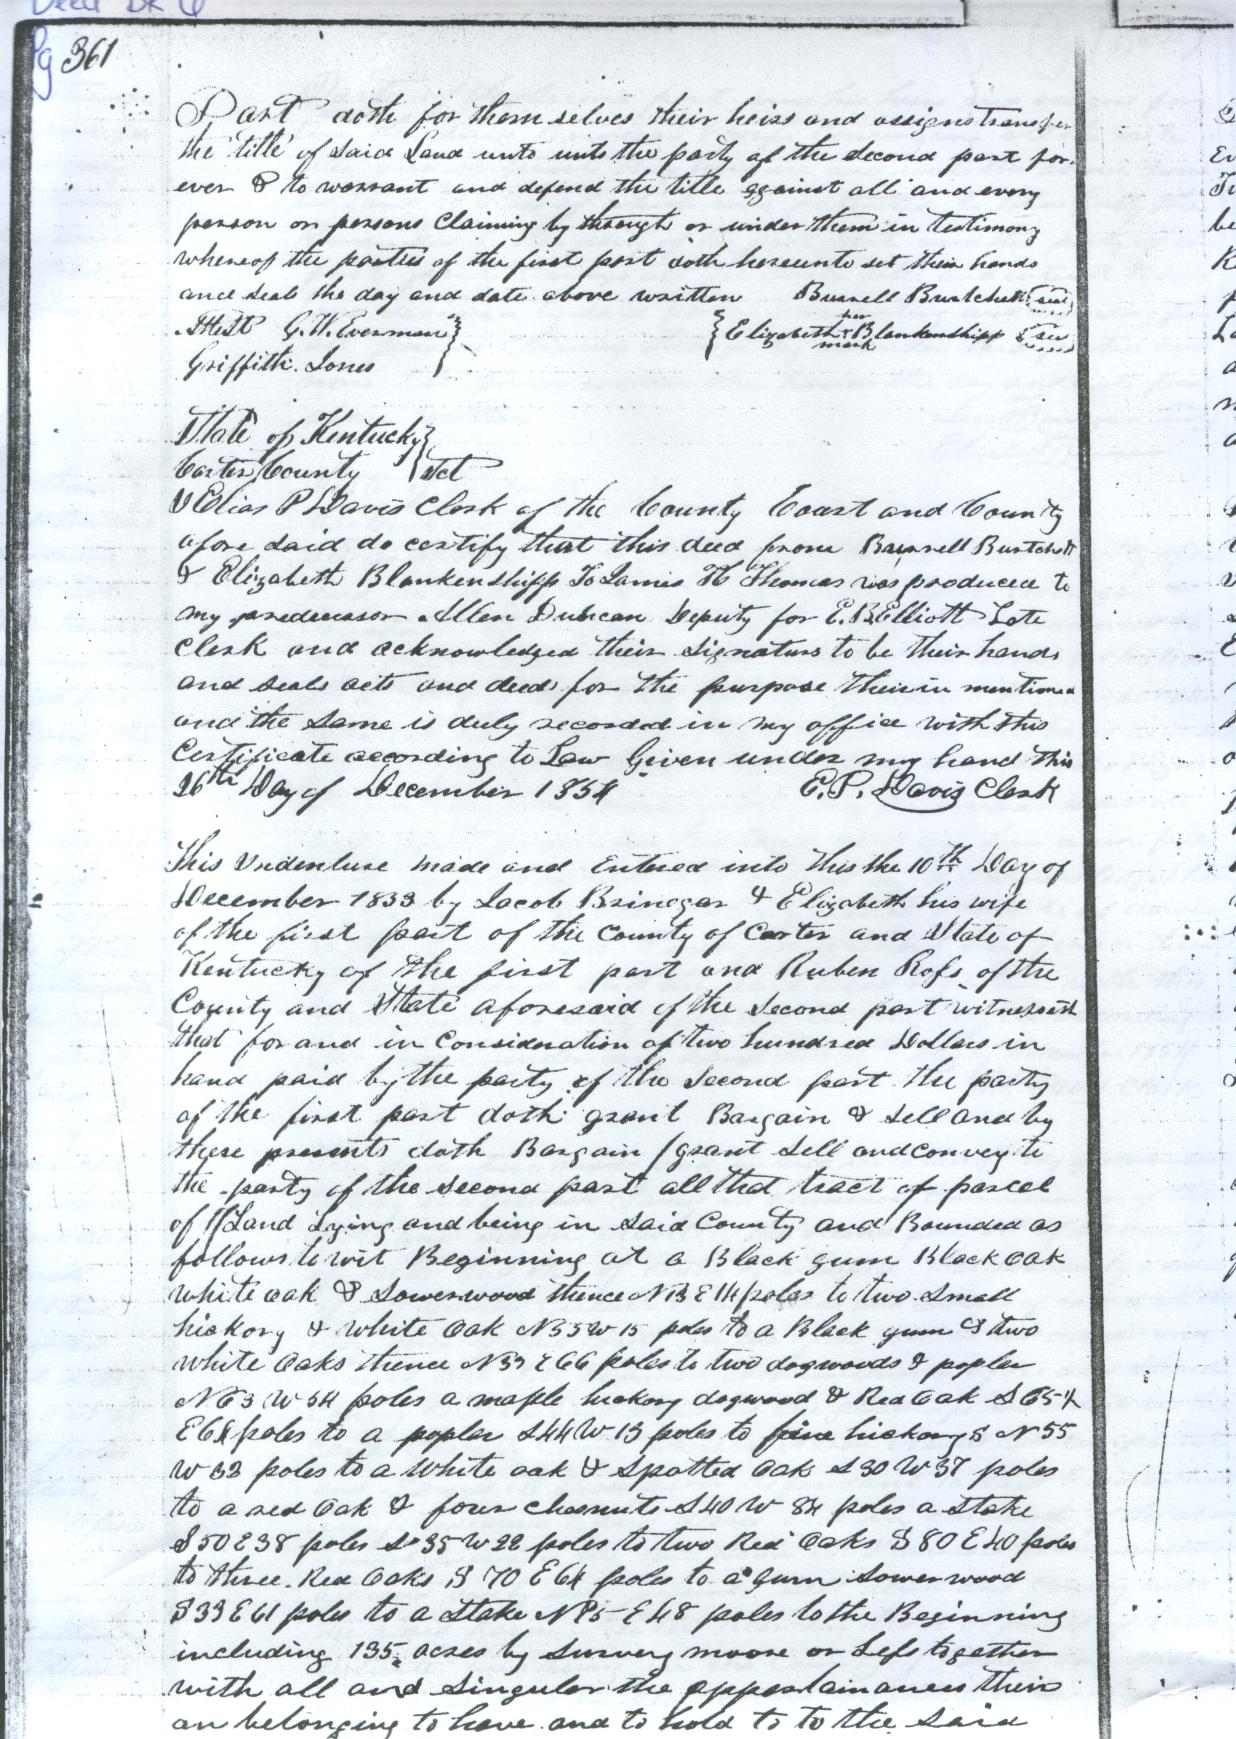 Deed Bk 6
Pg 361
Part doth for them selves their heirs and assigns transfer
the title of said Land unto unto the party of the second part for-
ever & to warrant and defend the title against all and every
person or persons Claiming by through or under them in testimony
whereof the parties of the first part doth hereunto set their hands
and seals the day and date above written Burrell Burtchett seal
Attest G. W. Everman
Elizabeth her x mark Blankenshipp seal
Griffith Jones
State of Kentucky
Carter County Sct
I Elias P Davis Clerk of the County Court and County
afore said do certify that this deed from Burrell Burtchett
& Elizabeth Blankenshipp To James H Thomas was produced to
my predecessor Allen Duncan Deputy for E. B Elliott Late
Clerk and acknowledged their signatures to be their hands
and seals acts and deeds for the purpose their in mentioned
and the same is duly recorded in my office with this
Certificate according to Law Given under my hand this
26th Day of December 1854
E. P. Davis Clerk
This Indenture made and Entered into this the 10th Day of
December 1853 by Jacob Brinegar & Elizabeth his wife
of the first part of the County of Carter and State of
Kentucky of the first part and Ruben Rofs of the
County and State aforesaid of the Second part witnesseth
that for and in Consideration of two hundred Dollars in
hand paid by the party of the Second part the party
of the first part doth grant Bargain & Sell and by
these presents doth Bargain grant Sell and convey to
the party of the second part all that tract of parcel
of Land Lying and being in said County and Bounded as
follows to wit Beginning at a Black gum Black oak
white oak & Sowerwood thence N 13 E 14 poles to two small
hickory & white Oak N 35 W 15 poles to a Black gum & two
white Oaks thence N 39 E 66 poles to two dogwoods & popler
N 63 W 54 poles a maple hickory dogwood & Red Oak S 65
E 64 poles to a popler S 44 W 13 poles to five hickorys N 55
W 32 poles to a White oak & Spotted Oak S 30 W 37 poles
to a red Oak & four Chesnuts S 40 W 84 poles a Stake
S 50 E 38 poles S 35 W 22 poles to two Red Oaks S 80 E 40 poles
to three Red Oaks S 70 E 64 poles to a gum Sowerwood
S 39 E 61 poles to a Stake N 85 E 48 poles to the Beginning
including 135 acres by Survey moore or Lefs together
with all and Singular the appertainances their
an belonging to have and to hold to to the Said